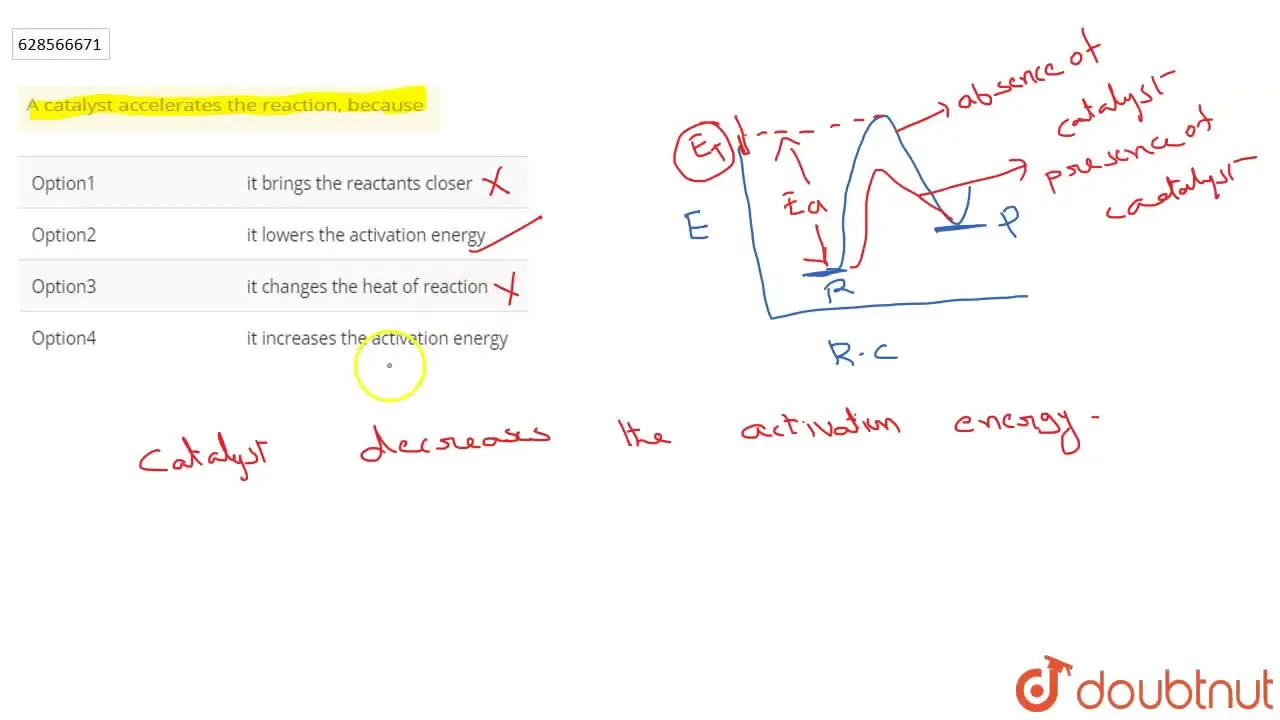 628566671
A catalyst accelerates the reaction, because
Option1 it brings the reactants closer
Option2 it lowers the activation energy
Option3 it changes the heat of reaction
Option4 it increases the activation energy
absence of
catalyst
presence of
catalyst
ET
Ea
E
R
P
R.C
Catalyst decreases the activation energy.
doubtnut